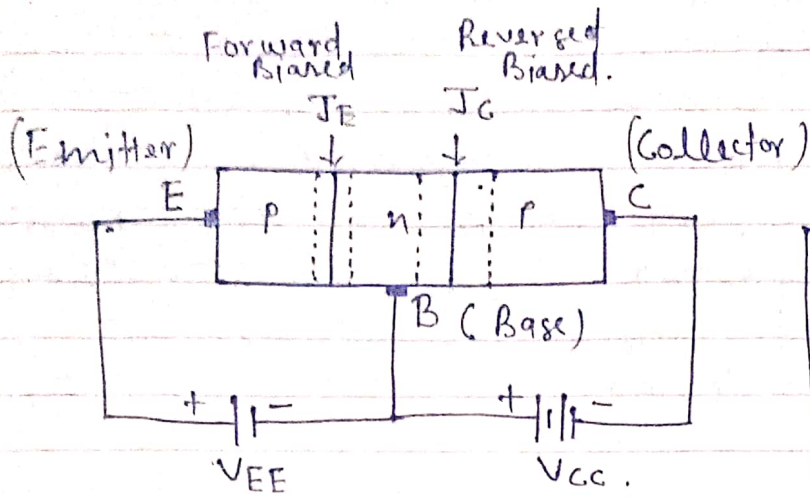 Forward Biased
Reversed Biased.
JE
JC
(Emitter)
(Collector)
E
C
P
n
P
B (Base)
+
-
+
-
VEE
VCC.